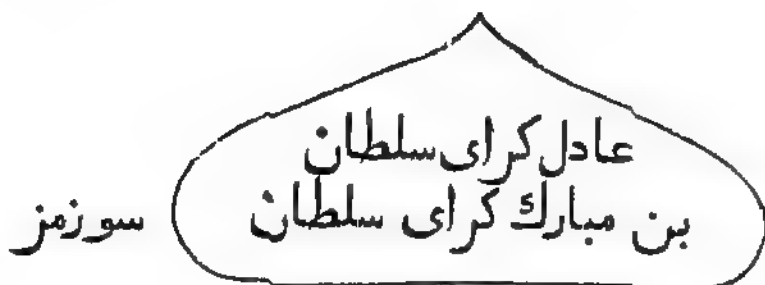 عادل كرای سلطان
بن مبارك كرای سلطان
سوزمز